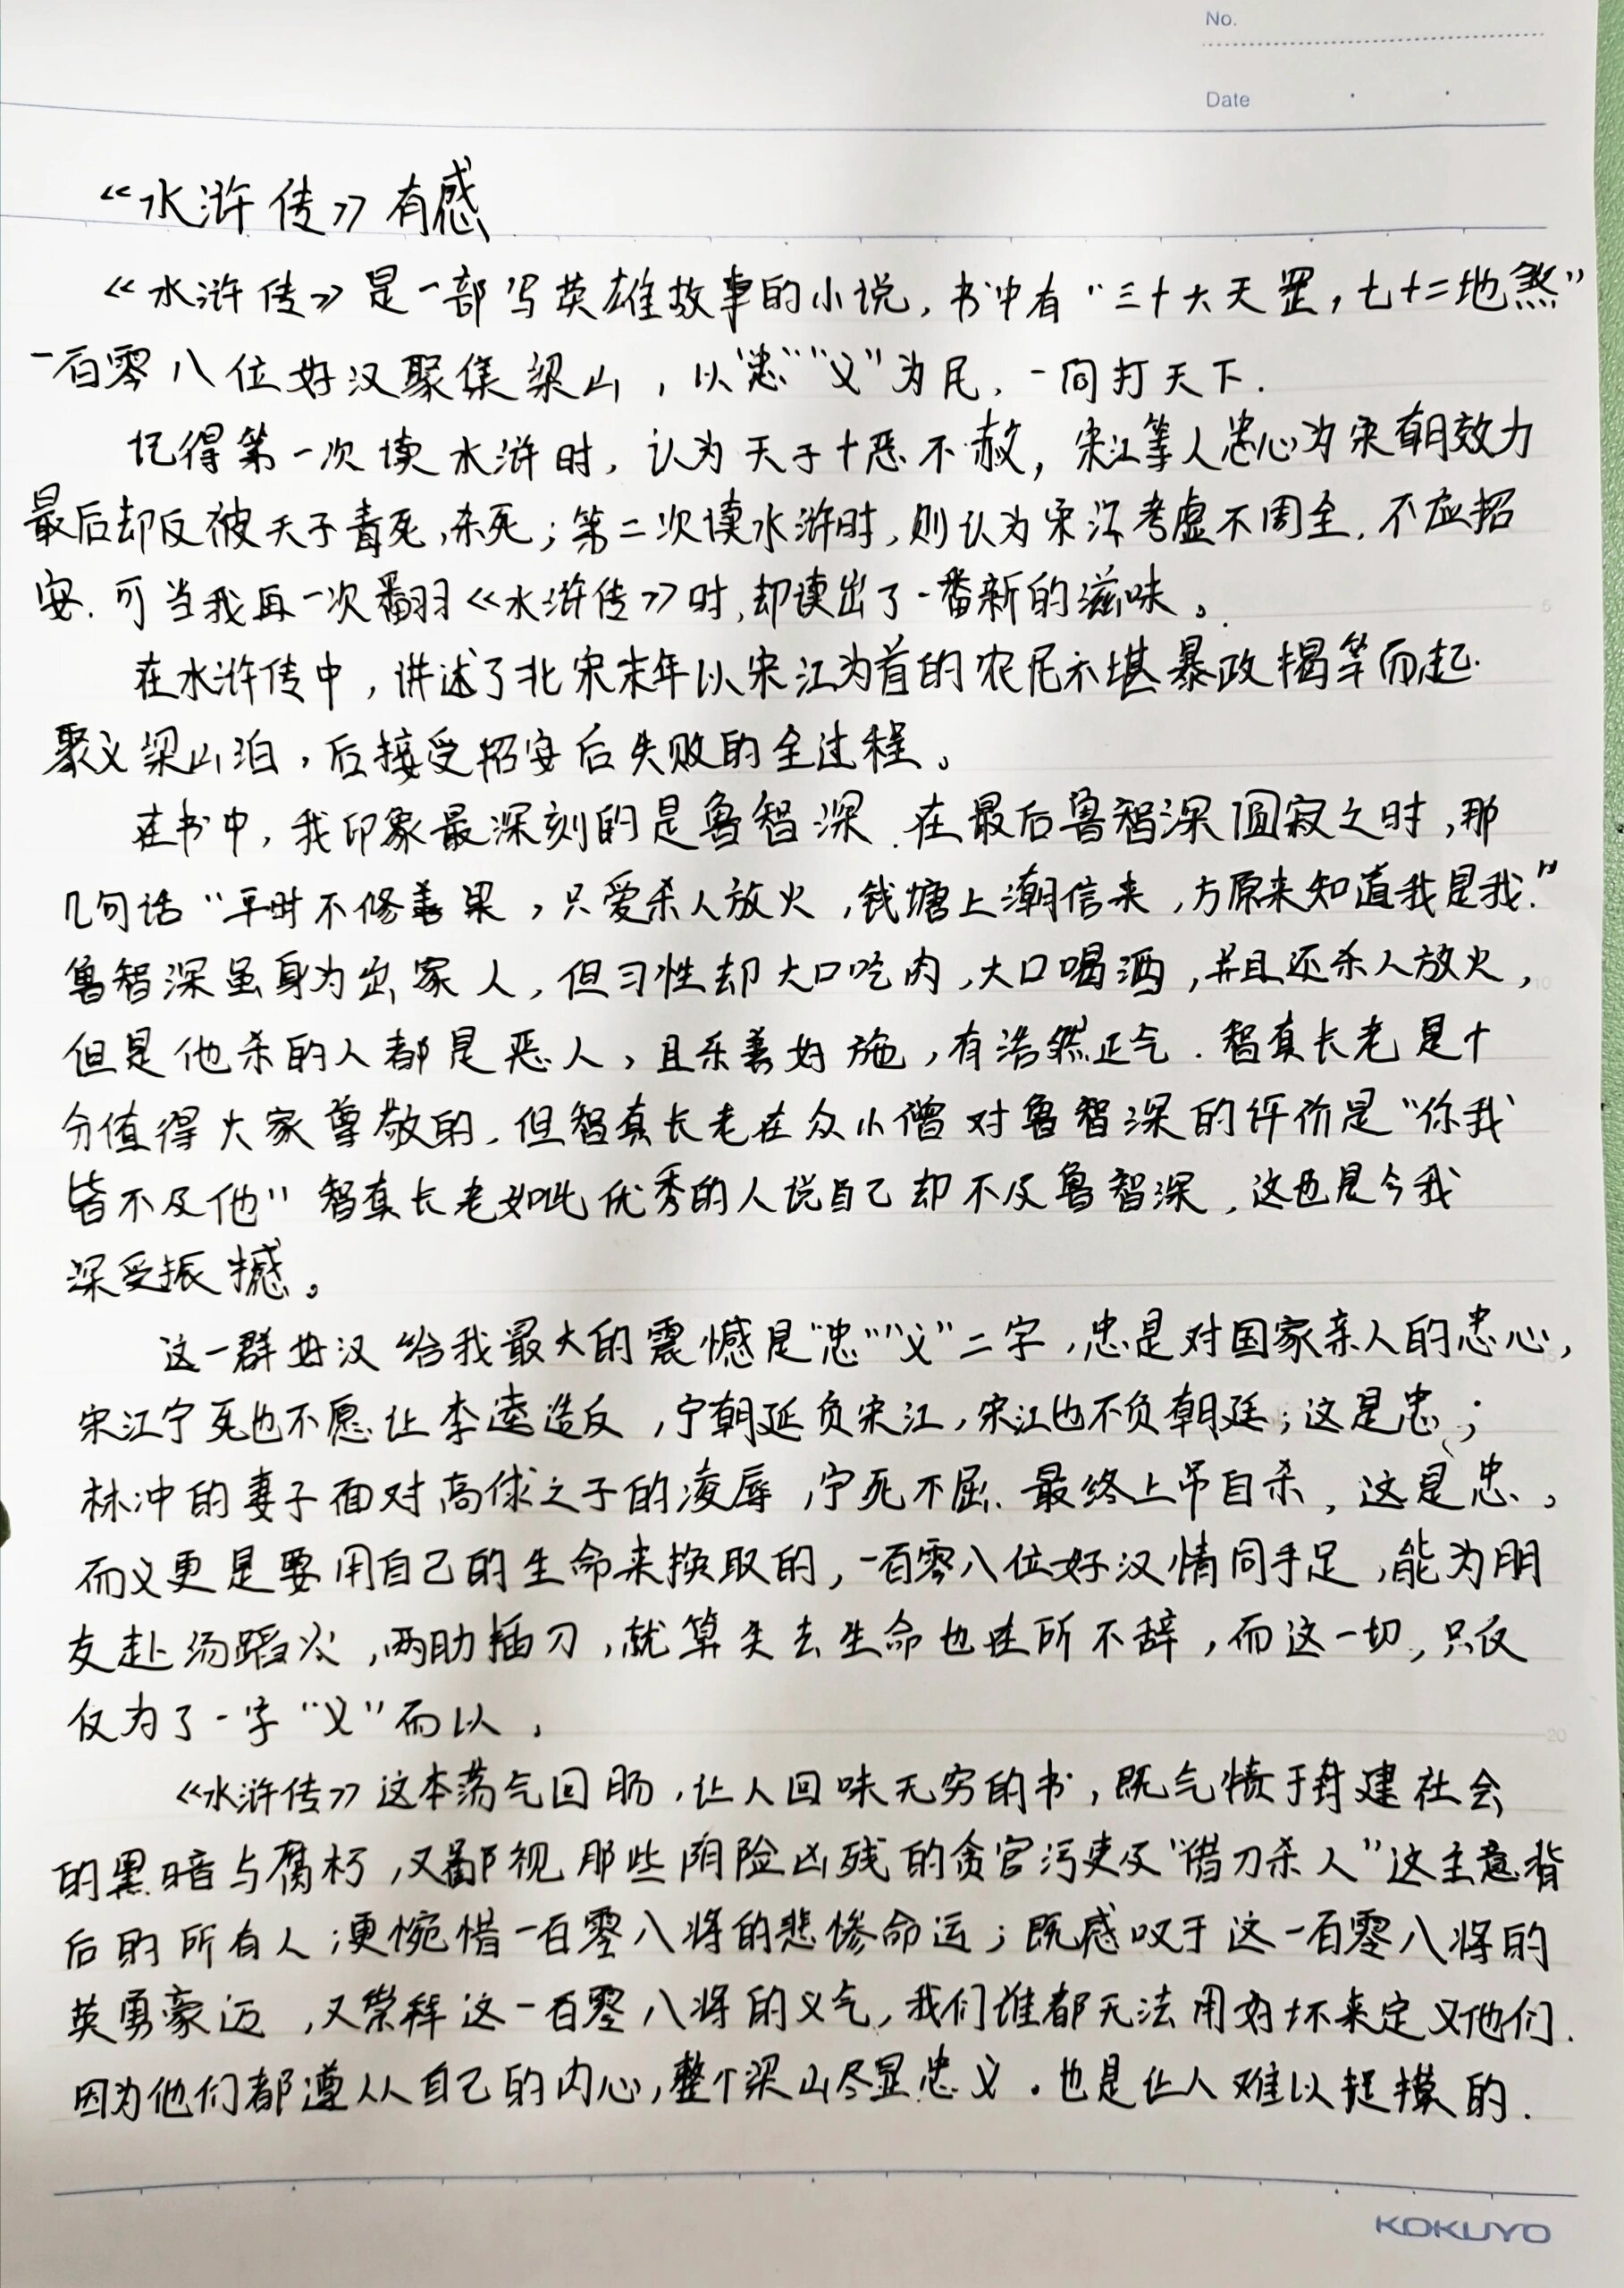 No.
Date
《水浒传》有感
《水浒传》是一部写英雄故事的小说，书中有“三十六天罡，七十二地煞”
一百零八位好汉聚集梁山，以“忠”“义”为民，一同打天下.
记得第一次读水浒时，认为天子十恶不赦，宋江等人忠心为宋朝效力
最后却反被天子毒死，杀死；第二次读水浒时，则认为宋江考虑不周全，不应招
安.可当我再一次翻羽《水浒传》时，却读出了一番新的滋味。
在水浒传中，讲述了北宋末年以宋江为首的农民不堪暴政揭竿而起.
聚义梁山泊，后接受招安后失败的全过程。
在书中，我印象最深刻的是鲁智深.在最后鲁智深圆寂之时，那
几句话“平时不修善果，只爱杀人放火，钱塘上潮信来，方原来知道我是我.”
鲁智深虽身为出家人，但习性却大口吃肉，大口喝酒，并且还杀人放火，
但是他杀的人都是恶人，且乐善好施，有浩然正气.智真长老是十
分值得大家尊敬的，但智真长老在众小僧对鲁智深的评价是“你我
皆不及他”智真长老如此优秀的人说自己却不及鲁智深，这也是令我
深受振撼。
这一群好汉给我最大的震憾是“忠”“义”二字，忠是对国家亲人的忠心，
宋江宁死也不愿让李逵造反，宁朝延负宋江，宋江也不负朝廷；这是忠；
林冲的妻子面对高俅之子的凌辱，宁死不屈、最终上吊自杀，这是忠，
而义更是要用自己的生命来换取的，一百零八位好汉情同手足，能为朋
友赴汤蹈火，两肋插刀，就算失去生命也在所不辞，而这一切，只仅
仅为了一字“义”而以，
《水浒传》这本荡气回肠，让人回味无穷的书，既气愤于封建社会
的黑暗与腐朽，又鄙视那些阴险凶残的贪官污吏及“借刀杀人”这主意背
后的所有人；更惋惜一百零八将的悲惨命运；既感叹于这一百零八将的
英勇豪迈，又崇拜这一百零八将的义气，我们谁都无法用好坏来定义他们.
因为他们都遵从自己的内心，整个梁山尽显忠义。也是让人难以捉摸的.
KOKUYO